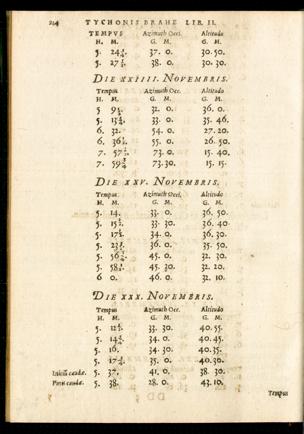 214 TYCHONIS BRAHE LIB. II.
TEMPUS Azimuth Occi. Altitudo
H. M. G. M. G. M.
5. 24 37. 0. 30. 50.
5. 27 38. 0. 30. 30.
DIE XXIIII. NOVEMBRIS.
Tempus Azimuth Occ. Altitudo
H. M. G. M. G. M.
5 9 32. 0. 36. 0.
5. 33. 0. 35. 46.
6. 32. 54. 0. 27. 20.
6. 36 55. 0. 26. 50.
7. 57 73. 0. 15. 40.
7. 59 73. 30. 15. 15.
DIE XXV. NOVEMBRIS.
Tempus Azimuth Occ. Altitudo
H. M. G. M. G. M.
5. 14. 33. 0. 36. 50.
5. 15 33. 30. 36. 40.
5. 17 34. 0. 36. 30.
5. 23 36. 0. 35. 50.
5. 56 45. 0. 32. 30.
5. 58 45. 30. 32. 20.
6 0. 46. 0. 32. 10.
DIE XXX. NOVEMBRIS.
Tempus Azimuth Occ. Altitudo
H. M. G. M. G. M.
5. 12 33. 30. 40. 55.
5. 14 34. 0. 40. 45.
5. 16. 34. 30. 40. 35.
5. 17 35. 0. 40. 30.
Initiũ caudæ. 5. 37. 41. 0. 38. 30.
Finis caudæ. 5. 38. 28. 0. 43. 10.
Tempus